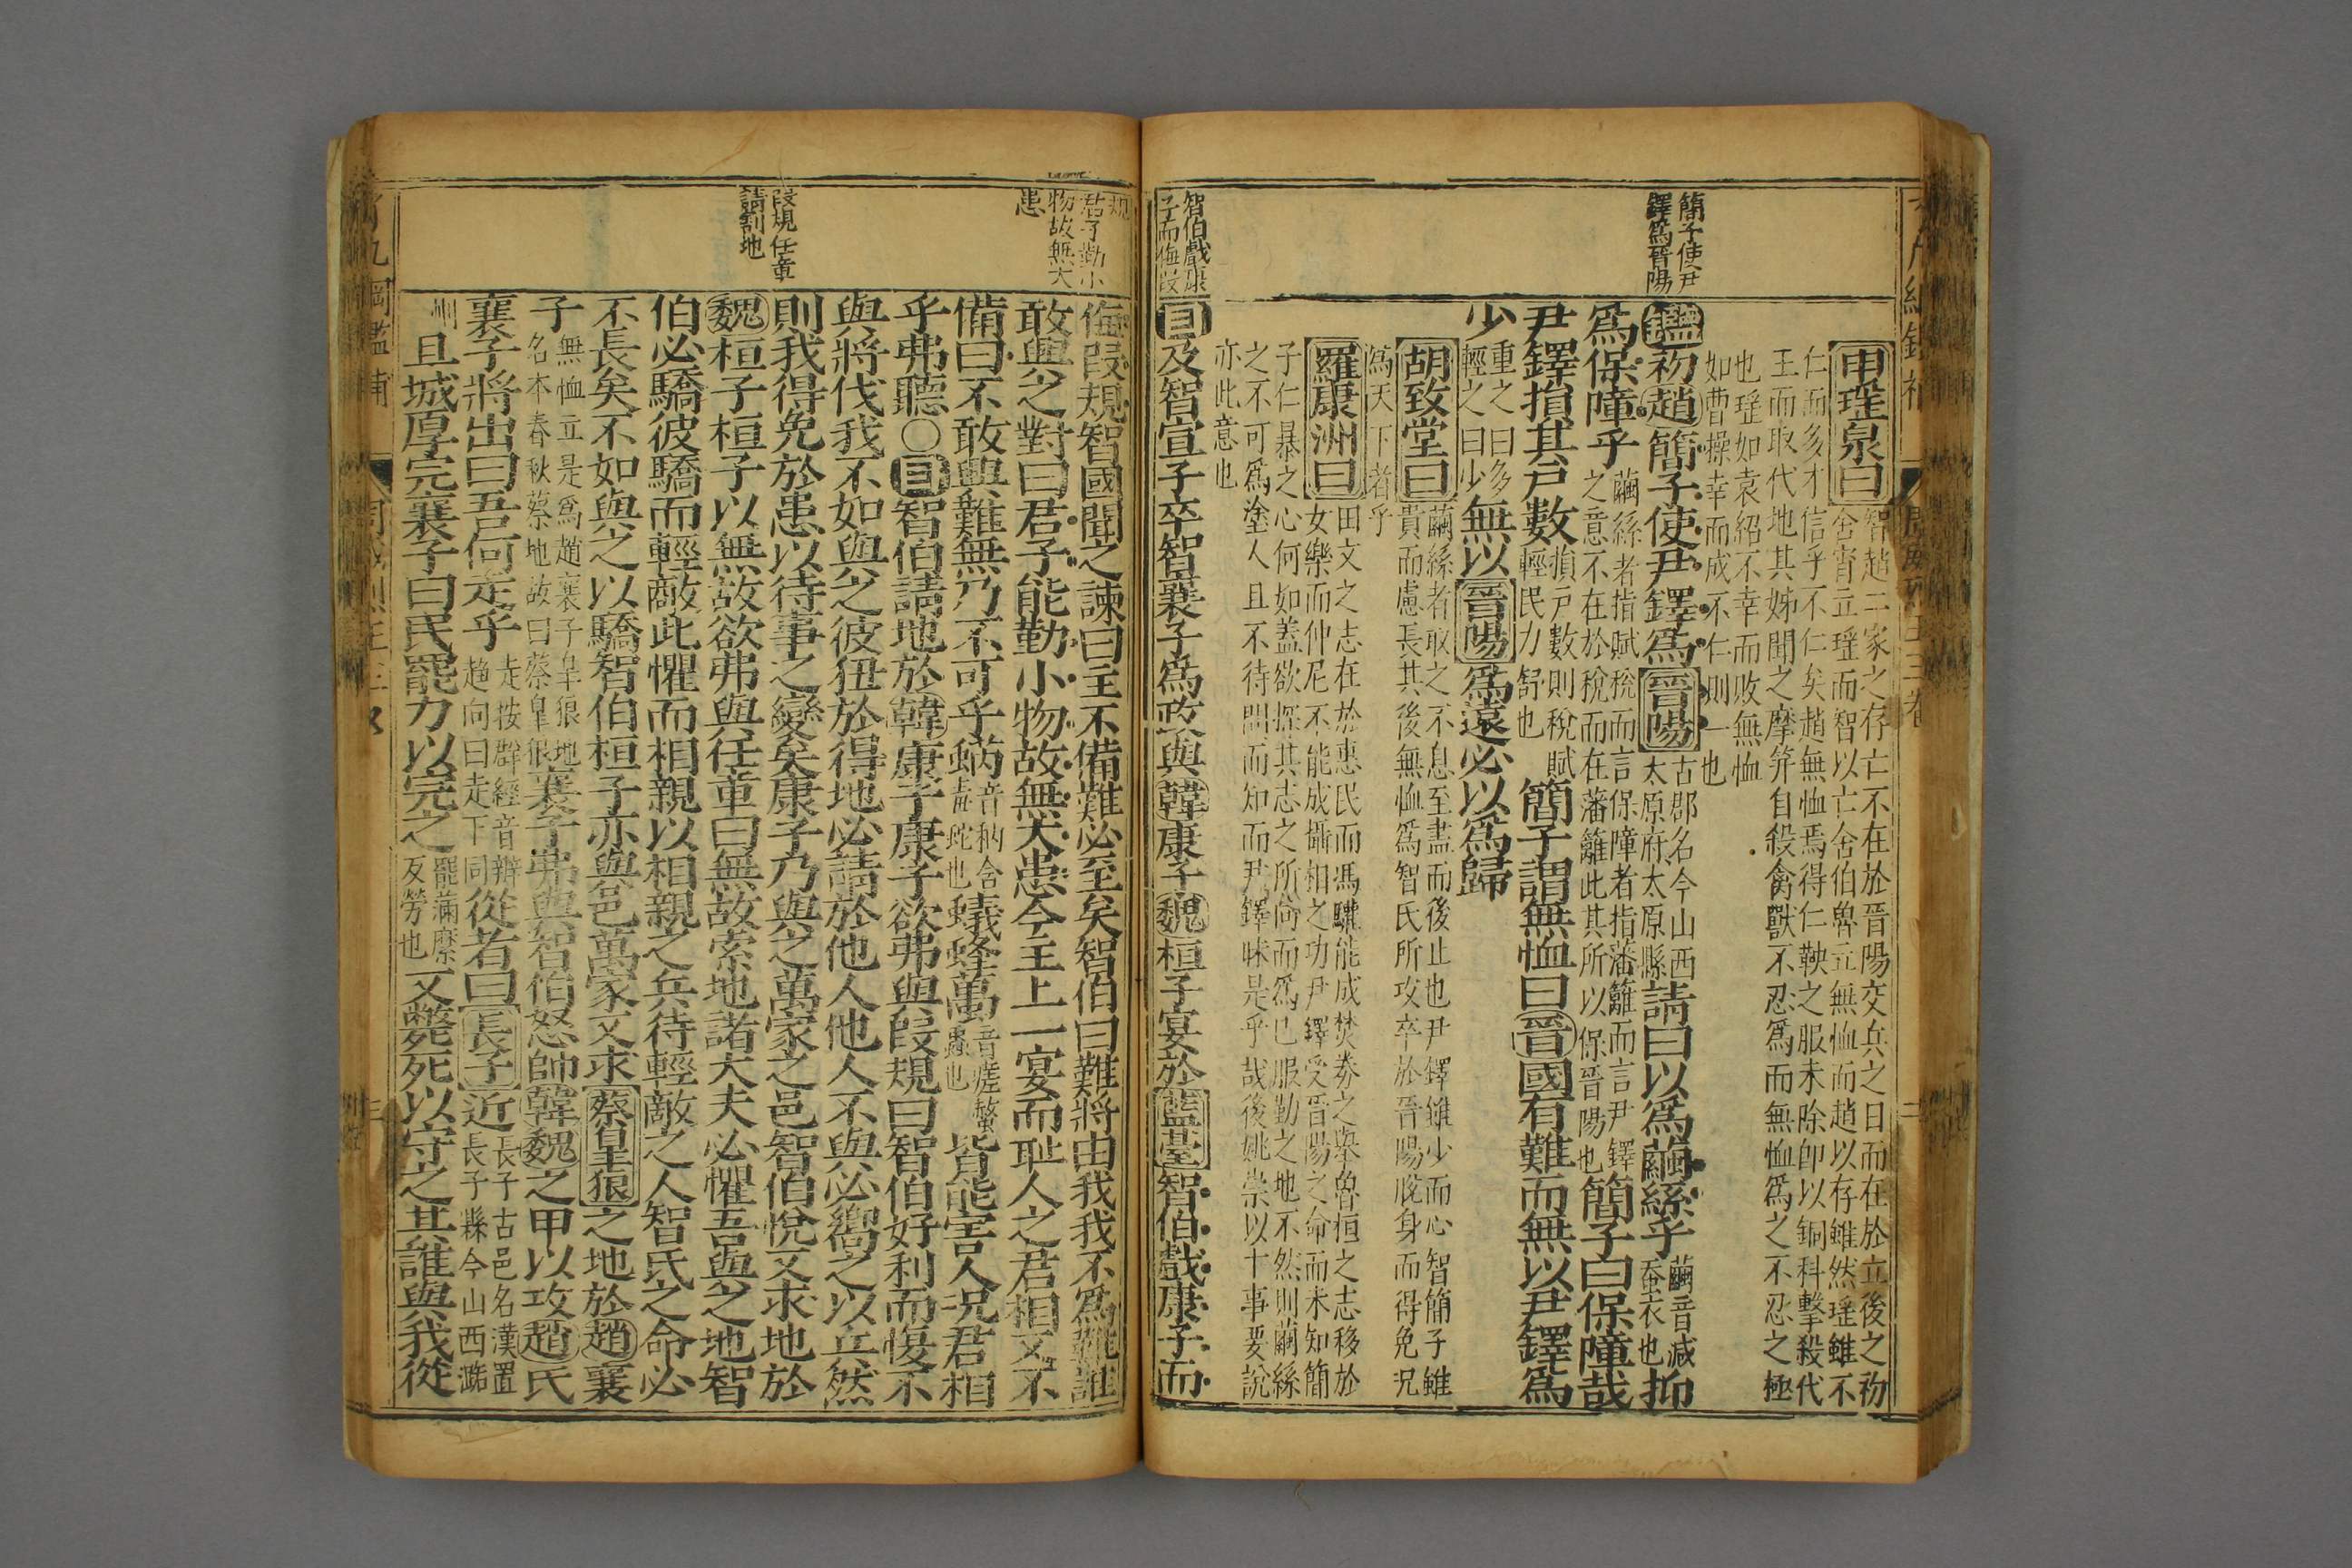 簡子使尹
鐸爲晉陽
智伯戲康
子而侮叚
申瑤泉曰
智趙二家之存亡不在於晉陽交兵之日而在於立後之初
舍宵立瑤而智以亡舍伯魯立無恤而趙以存雖然瑤雖不
仁而多才信乎不仁矣趙無恤焉得仁鞅之服未除卽以銅科擊殺代
王而取代地其姊聞之摩笄自殺禽獸不忍爲而無恤爲之不忍之極
也瑤如袁紹不幸而敗無恤
如曹操幸而成不仁則一也
鑑初趙簡子使尹鐸爲晉陽
古郡名今山西
太原府太原縣
請曰以爲繭絲乎
繭音減
蚕衣也
抑
爲保障乎
繭絲者指賦稅而言保障者指藩籬而言尹鐸
之意不在於稅而在藩籬此其所以保晉陽也
簡子曰保障哉
尹鐸損其戸數
損戸數則稅賦
輕民力舒也
簡子謂無恤曰晉國有難而無以尹鐸爲
少
重之曰多
輕之曰少
無以晉陽爲遠必以爲歸
胡致堂曰
繭絲者取之不息至盡而後止也尹鐸雖少而心智簡子雖
貴而慮長其後無恤爲智氏所攻卒於晉陽脫身而得免况
爲天下者乎
羅康洲曰
田文之志在於惠民而馮驩能成焚券之舉魯桓之志移於
女樂而仲尼不能成攝相之功尹鐸受晉陽之命而未知簡
子仁暴之心何如盖欲探其志之所向而爲己服勤之地不然則繭絲
之不可爲塗人且不待問而知而尹鐸昧是乎哉後姚崇以十事要說
亦此意也
目及智宣子卒智襄子爲政與韓康子魏桓子宴於藍臺智伯戲康子而
規
君子勤小
物故無大
患
段規任章
請割地
侮叚規智國聞之諫曰主不備難必至矣智伯曰難將由我我不爲難誰
敢興之對曰君子能勤小物故無大患今主上一宴而耻人之君相又不
備曰不敢興難無乃不可乎蜹
音枘含
毒蛇也
蟻蜂蠆
音瘥螫
蟲也
皆能害人况君相
乎弗聽○目智伯請地於韓康子康子欲弗與叚規曰智伯好利而愎不
與將伐我不如與之彼狃於得地必請於他人他人不與必嚮之以立然
則我得免於患以待事之變矣康子乃與之萬家之邑智伯悅又求地於
魏桓子桓子以無故欲弗與任章曰無故索地諸大夫必懼吾與之地智
伯必驕彼驕而輕敵此懼而相親以相親之兵待輕敵之人智氏之命必
不長矣不如與之以驕智伯桓子亦與邑萬家又求蔡皐狼之地於趙襄
子
無恤立是爲趙襄子皐狼地
名本春秋蔡地故曰蔡皐狼
襄子弗與智伯怒帥韓魏之甲以攻趙氏
襄子將出曰吾何走乎
走按辟經音辨
趨向曰走下同
從者曰長子近
長子古邑名漢置
長子縣今山西潞
州
且城厚完襄子曰民罷力以完之
罷蒲縻
反勞也
又斃死以守之其誰與我從